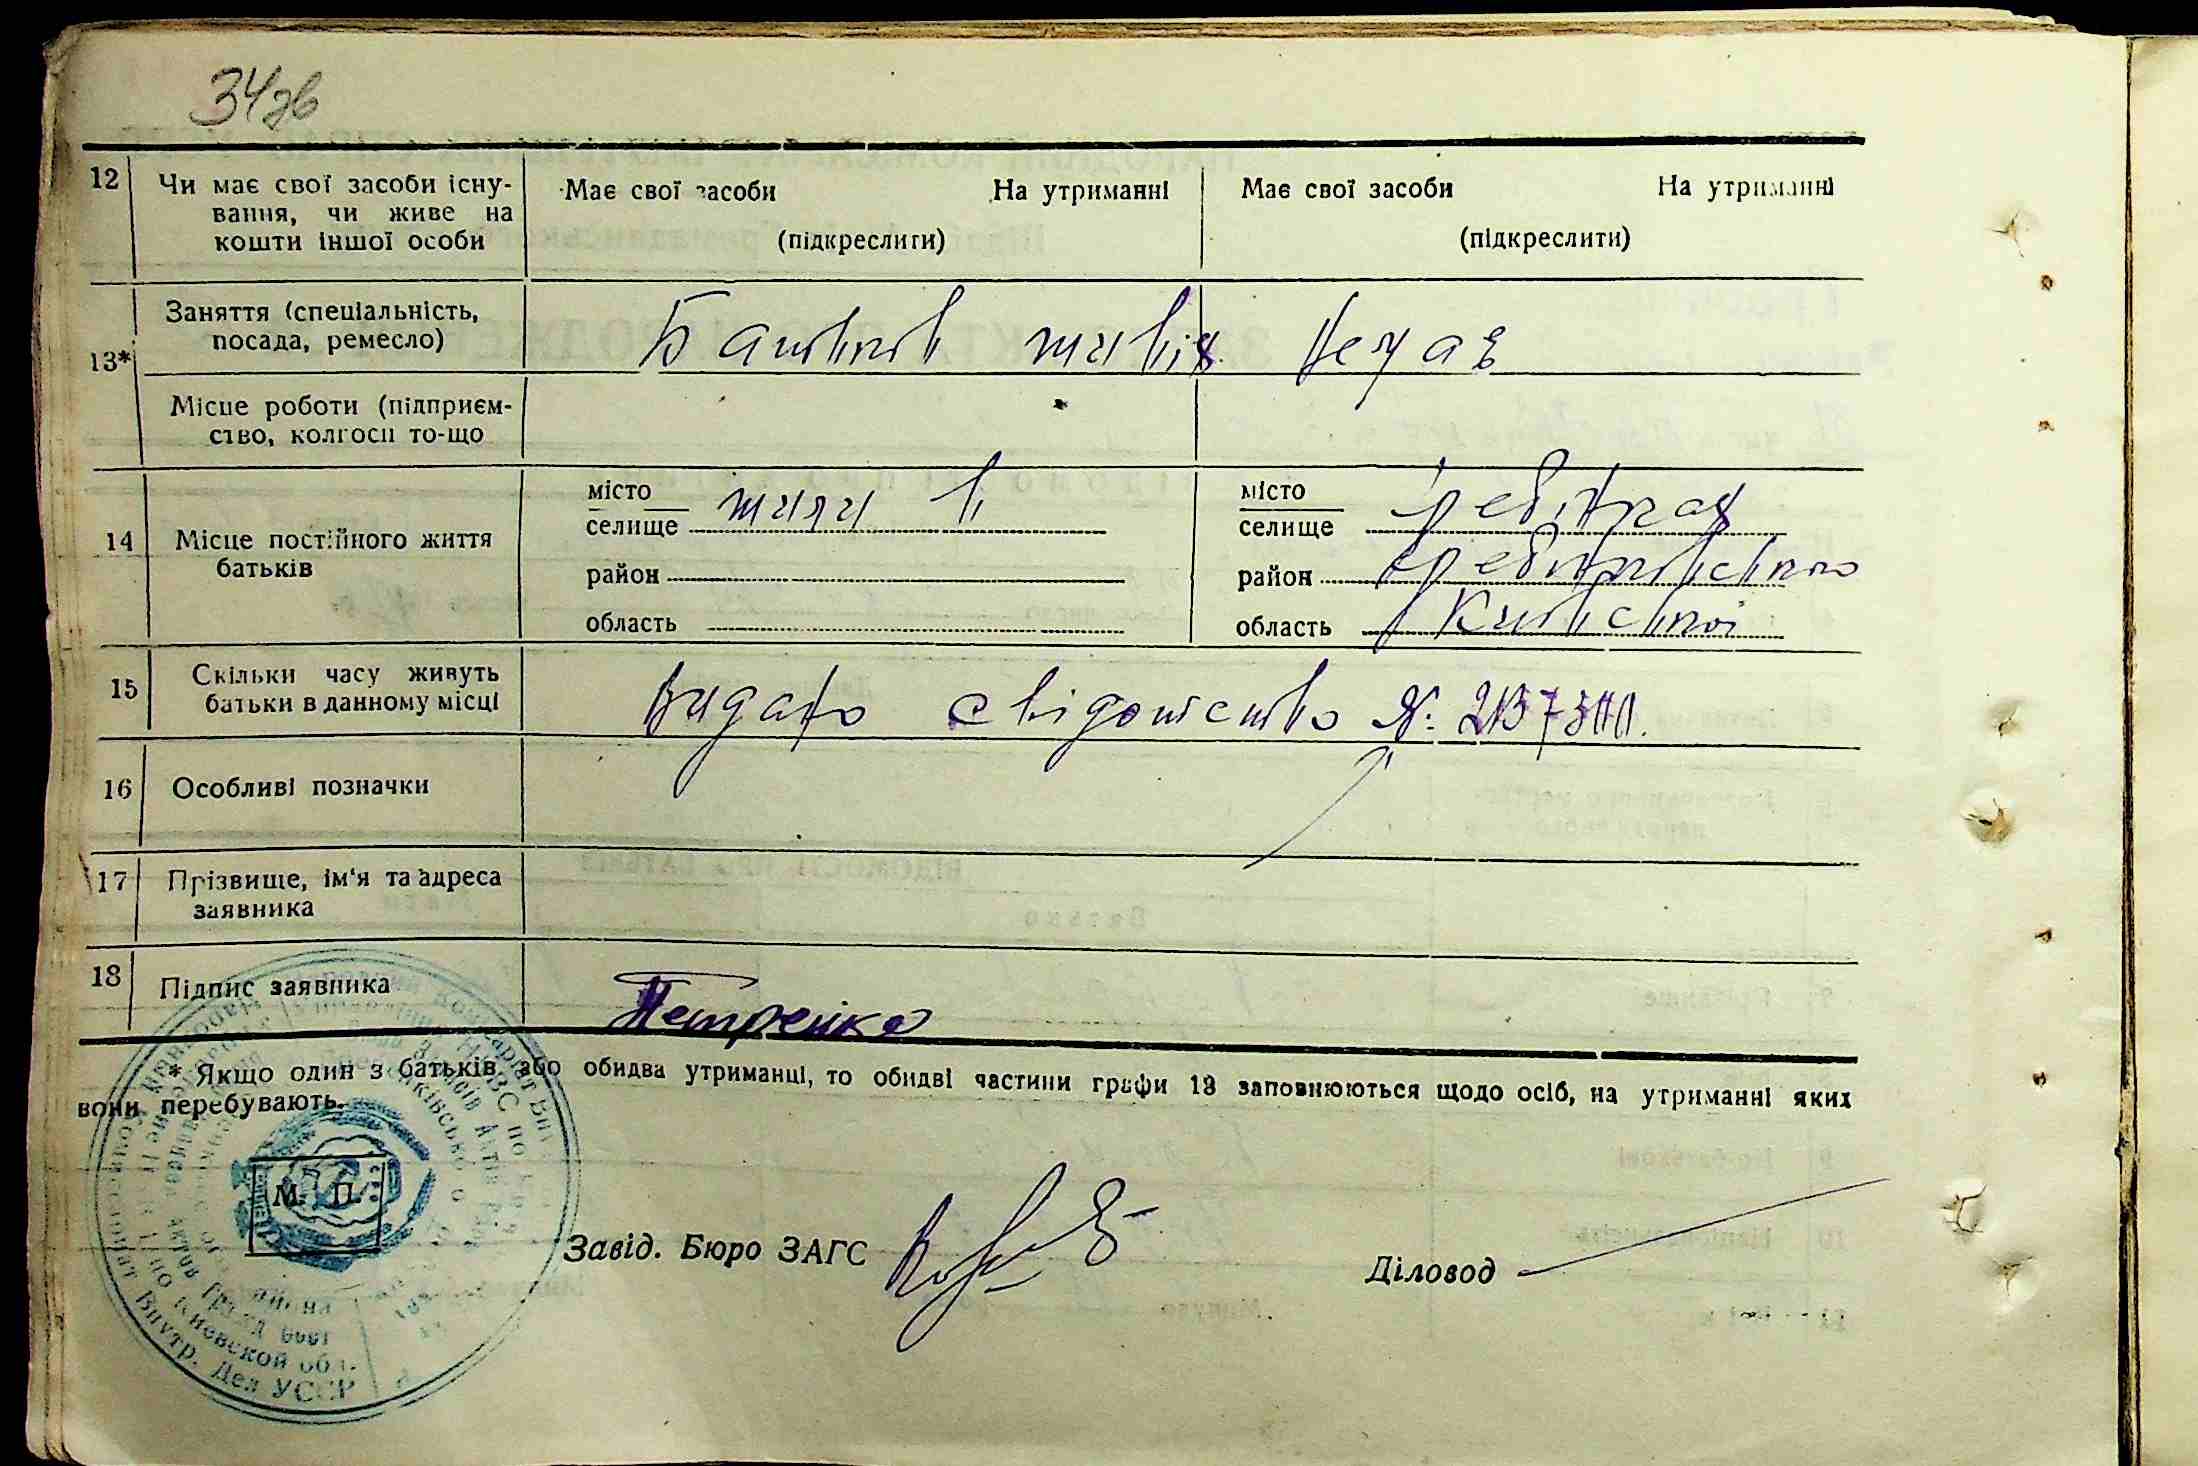 34зв
12 Чи має свої засоби існу- Має свої засоби На утриманні Має свої засоби На утриманні
вання, чи живе на
кошти іншої особи (підкреслити) (підкреслити)
13* Заняття (спеціальність,
посада, ремесло) Батьків живіх немає
Місце роботи (підприєм-
ство, колгосп то-що
14 Місце постійного життя
батьків
місто
селище жили в
район
область
місто
селище Гребінках
район Гребінківського
область Київської
15 Скільки часу живуть
батьки в данному місці Видано свідотство №
16 Особливі позначки
17 Прізвище, ім'я та адреса
заявника
18 Підпис заявника Петренко
* Якщо один з батьків або обидва утриманці, то обидві частини графи 13 заповнюються щодо осіб, на утриманні яких
вони перебувають.
М. П.
Завід. Бюро ЗАГС
Діловод
Киевской обл.
Внутр. Дел УССР